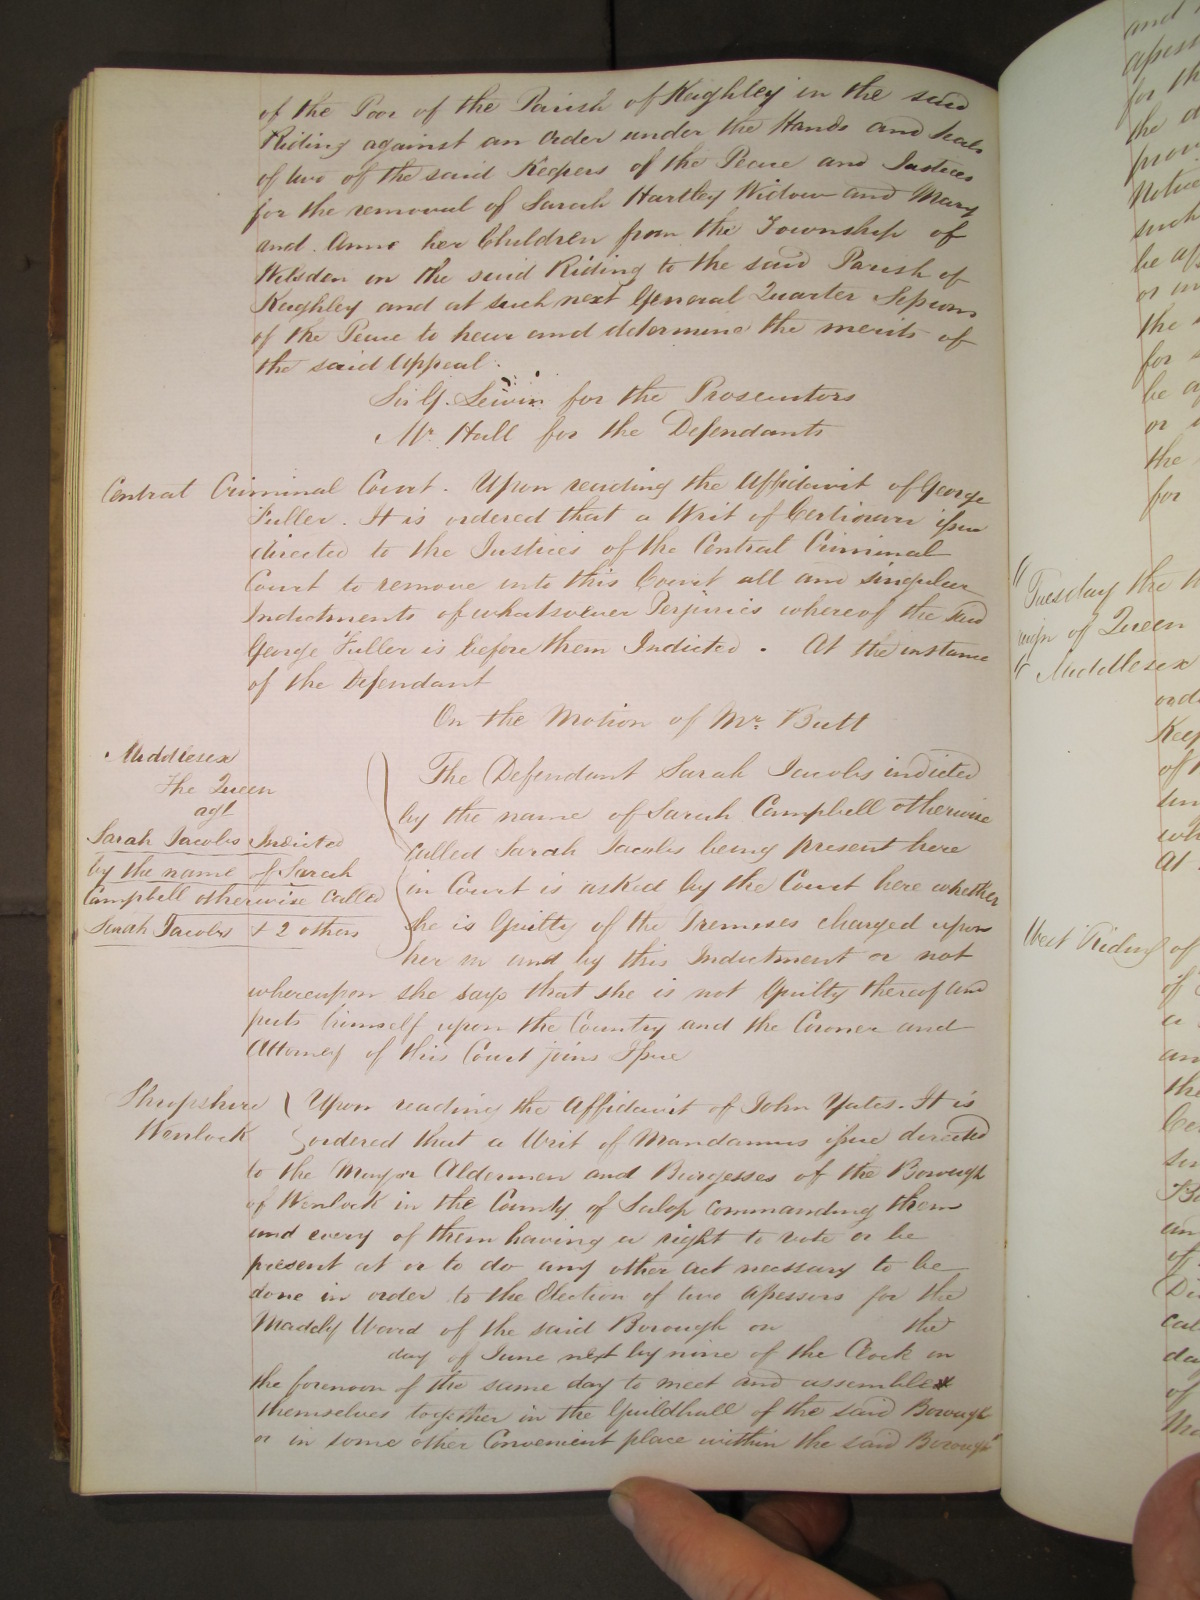 of the Poor of the Parish of Keighley in the said
Riding against an Order under the Hands and Seals
of two of the said Keepers of the Peace and Justices
for the removal of Sarah Hartley Widow and Mary
and Anne her Children from the Township of
Wilsden in the said Riding to the said Parish of
Keighley and at such next General Quarter Sessions
of the Peace to hear and determine the merits of
the said Appeal.
Sir G. Lewin for the Prosecutors
Mr. Hall for the Defendants
Central Criminal Court. Upon reading the Affidavit of George
Fuller. It is ordered that a Writ of Certiorari issue
directed to the Justices of the Central Criminal
Court to remove into this Court all and singular
Indictments of whatsoever Perjuries whereof the said
George Fuller is before them Indicted. At the instance
of the Defendant
On the Motion of Mr. Butt
Middlesex
The Queen
agt
Sarah Jacobs Indicted
by the name of Sarah
Campbell otherwise called
Sarah Jacobs & 2 others
The Defendant Sarah Jacobs indicted
by the name of Sarah Campbell otherwise
called Sarah Jacobs being present here
in Court is asked by the Court here whether
she is Guilty of the Premises charged upon
her in and by this Indictment or not
whereupon she says that she is not Guilty thereof and
puts himself upon the Country and the Coroner and
Attorney of this Court joins Issue
Shropshire
Wenlock
Upon reading the Affidavit of John Yates. It is
ordered that a Writ of Mandamus issue directed
to the Mayor Aldermen and Burgesses of the Borough
of Wenlock in the County of Salop commanding them
and every of them having a right to vote or be
present at or to do any other act necessary to be
done in order to the Election of two Assessors for the
Madely Ward of the said Borough on the
day of June next by nine of the Clock in
the forenoon of the same day to meet and assemble
themselves together in the Guildhall of the said Borough
or in some other Convenient place within the said Borough
and
for the
the
such
or in
the
for
be
or
the
for
Tuesday the
reign of Queen
Middlesex
Keep
of
At
West Riding of
of
a
an
the
of
day
of